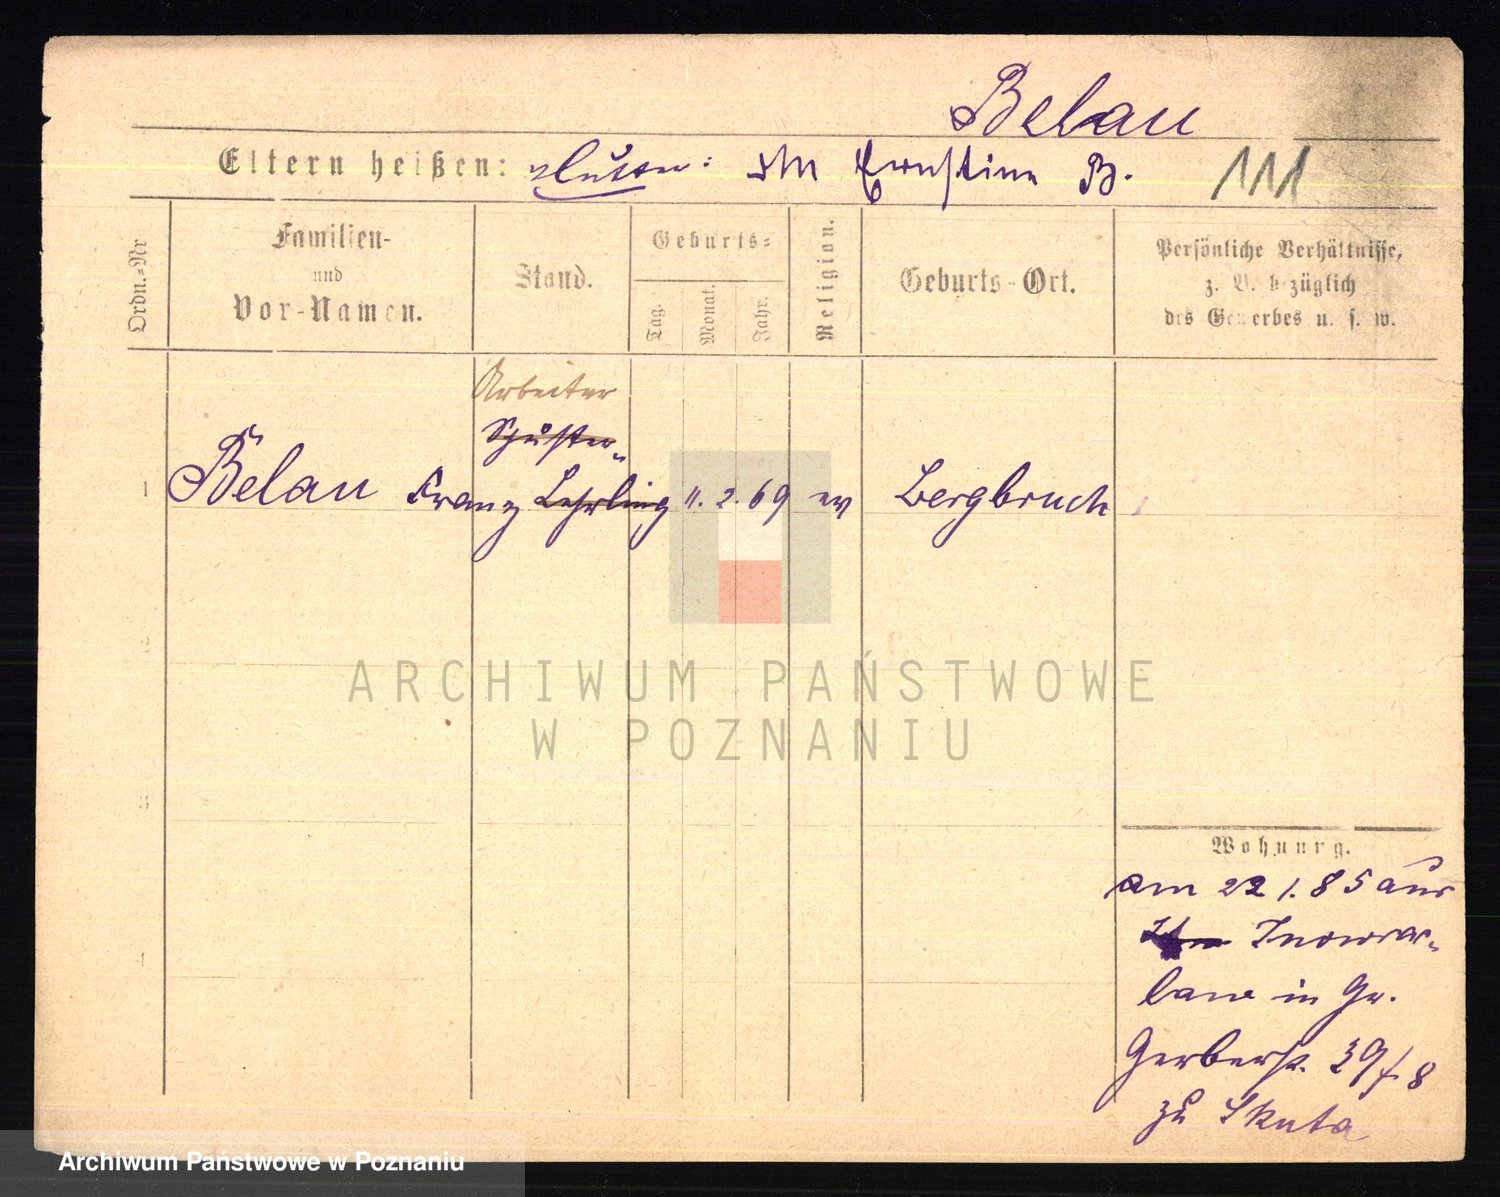 Belau
Eltern heißen: Mutter: Ernstine B. 111
Ordn.-Nr
Familien-
und
Vor-Namen.
Stand.
Geburts-
Tag. Monat. Jahr.
Religion.
Geburts-Ort.
Persönliche Verhältnisse,
z. B. bezüglich
des Gewerbes u. s. w.
Arbeiter
1 Belau Franz Lehrling 11. 2. 69 ev Bergbruch
3
4
ARCHIWUM PAŃSTWOWE
W POZNANIU
Wohnung.
am 22 1. 85 aus
Inowraz-
law in Gr.
Gerberst. 39/8
zu Skuta
Archiwum Państwowe w Poznaniu